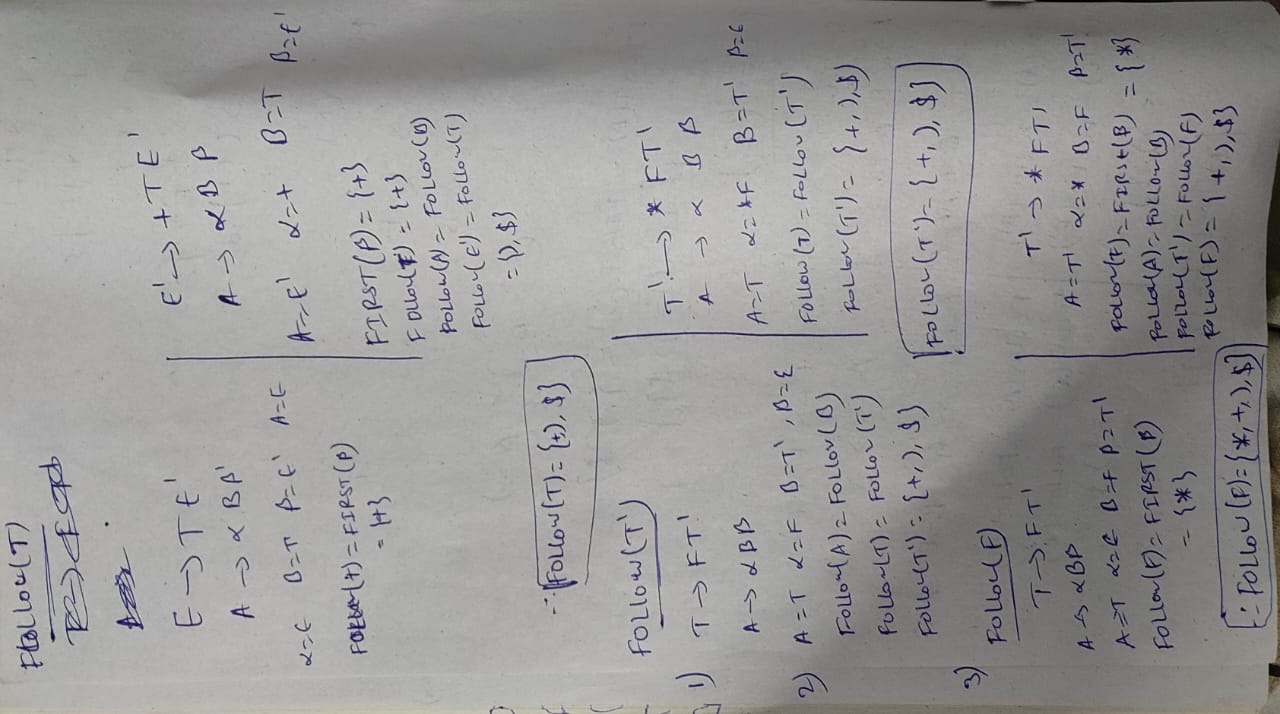 FOLLOW(T)
E → T E'
A → α B β'
α=ε B=T β=E' A=E
FOLLOW(T)=FIRST(β)
= {+}
E' → + T E'
A → α B β
A=E' α=+ B=T β=E'
FIRST(β) = {+}
FOLLOW(T) = {+}
FOLLOW(A) = FOLLOW(B)
FOLLOW(E') = FOLLOW(T)
= {), $}
∴ FOLLOW(T)={+,), $}
FOLLOW(T')
1) T → FT'
A → αBβ
2) A=T α=F B=T', β=ε
FOLLOW(A)=FOLLOW(B)
FOLLOW(T)= FOLLOW(T')
FOLLOW(T')= {+,), $}
T' → * FT'
A → α B β
A=T α=*F B=T' β=ε
FOLLOW(T)=FOLLOW(T')
FOLLOW(T')= {+,),$}
FOLLOW(T')= {+,), $}
3) FOLLOW(F)
T → FT'
A → αBβ
A=T α=ε B=F β=T'
FOLLOW(F)=FIRST(β)
= {*}
T' → * FT'
A=T' α=* B=F β=T'
FOLLOW(F)=FIRST(β) = {*}
FOLLOW(A)=FOLLOW(B)
FOLLOW(T')=FOLLOW(F)
FOLLOW(F)= {+,),$}
∴ FOLLOW(F)={*,+,),$}